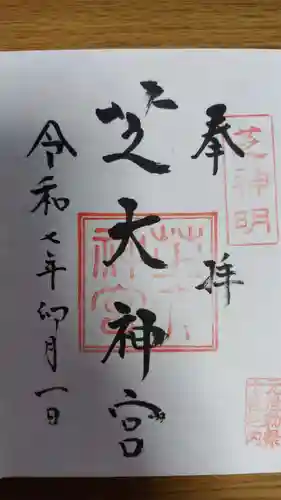 奉拝
芝神明
芝大神宮
令和七年卯月一日